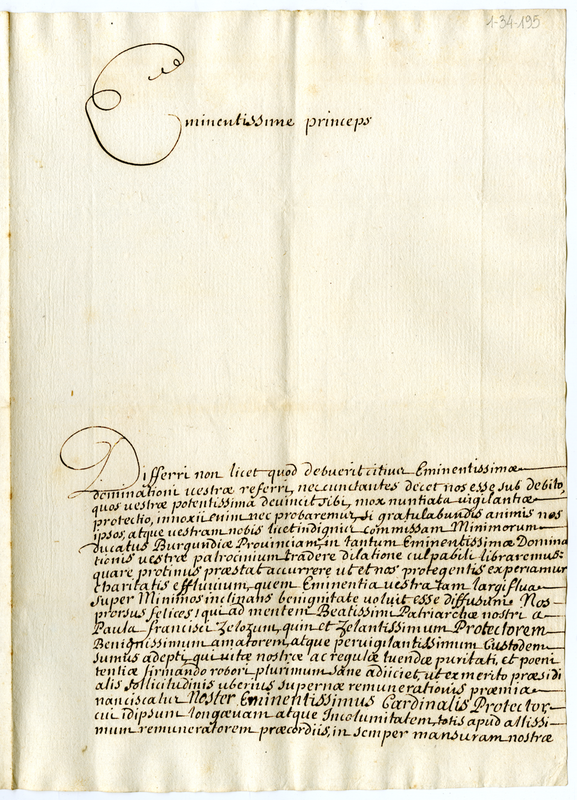 1-34-195
Eminentissime princeps
Differri non licet quod debuerit citius Eminentissimæ
dominationi vestræ referri, nec cunctantes decet nos esse sub debito,
quos vestræ potentissima devincit sibi, mox nuntiata vigilantiæ
protectio, innoxii enim nec probaremur, si gratulabundis animis nos
ipsos, atque vestram nobis licet indignis commissam Minimorum
ducatus Burgundiæ Provinciam, in tantum Eminentissimæ Domina
tionis vestræ patrocinium tradere dilatione culpabili libraremus:
quare protinus præstat accurrere ut et nos protegentis experiamur
charitatis effluvium, quem Eminentia vestra tam largiflua
super Minimos inclinans benignitate voluit esse diffusum. Nos
prorsus felices, qui ad mentem Beatissimi Patriarchæ nostri a
Paula francisci zelozum, quin et zelantissimum Protectorem
Benignissimum amatorem, atque pervigilantissimum Custodem
sumus adepti, qui vitæ nostræ ac regulæ tuendæ puritati, et poeni
tentiæ firmando robori plurimum sane adiiciet, ut ex merito præsidi
alis sollicitudinis uberius supernæ remunerationis præmia
nanciscatur Noster Eminentissimus Cardinalis Protector,
cui idipsum longævam atque Incolumitatem, totis apud altissi
mum remuneratorem præcordiis, in semper mansuram nostræ